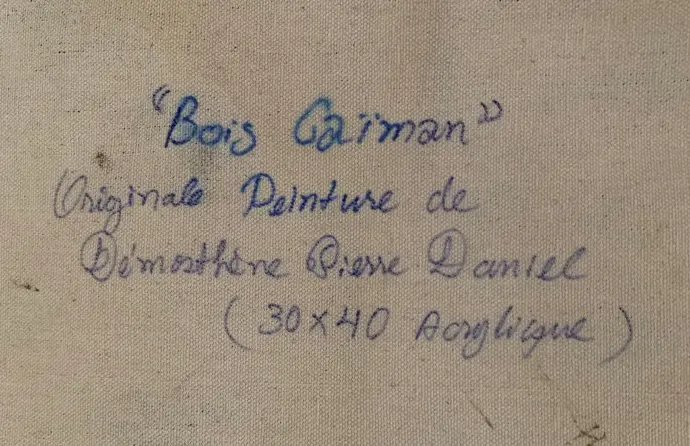 "Bois Caïman"
Originale Peinture de
Démosthène Pierre Daniel
(30x40 Acrylique)